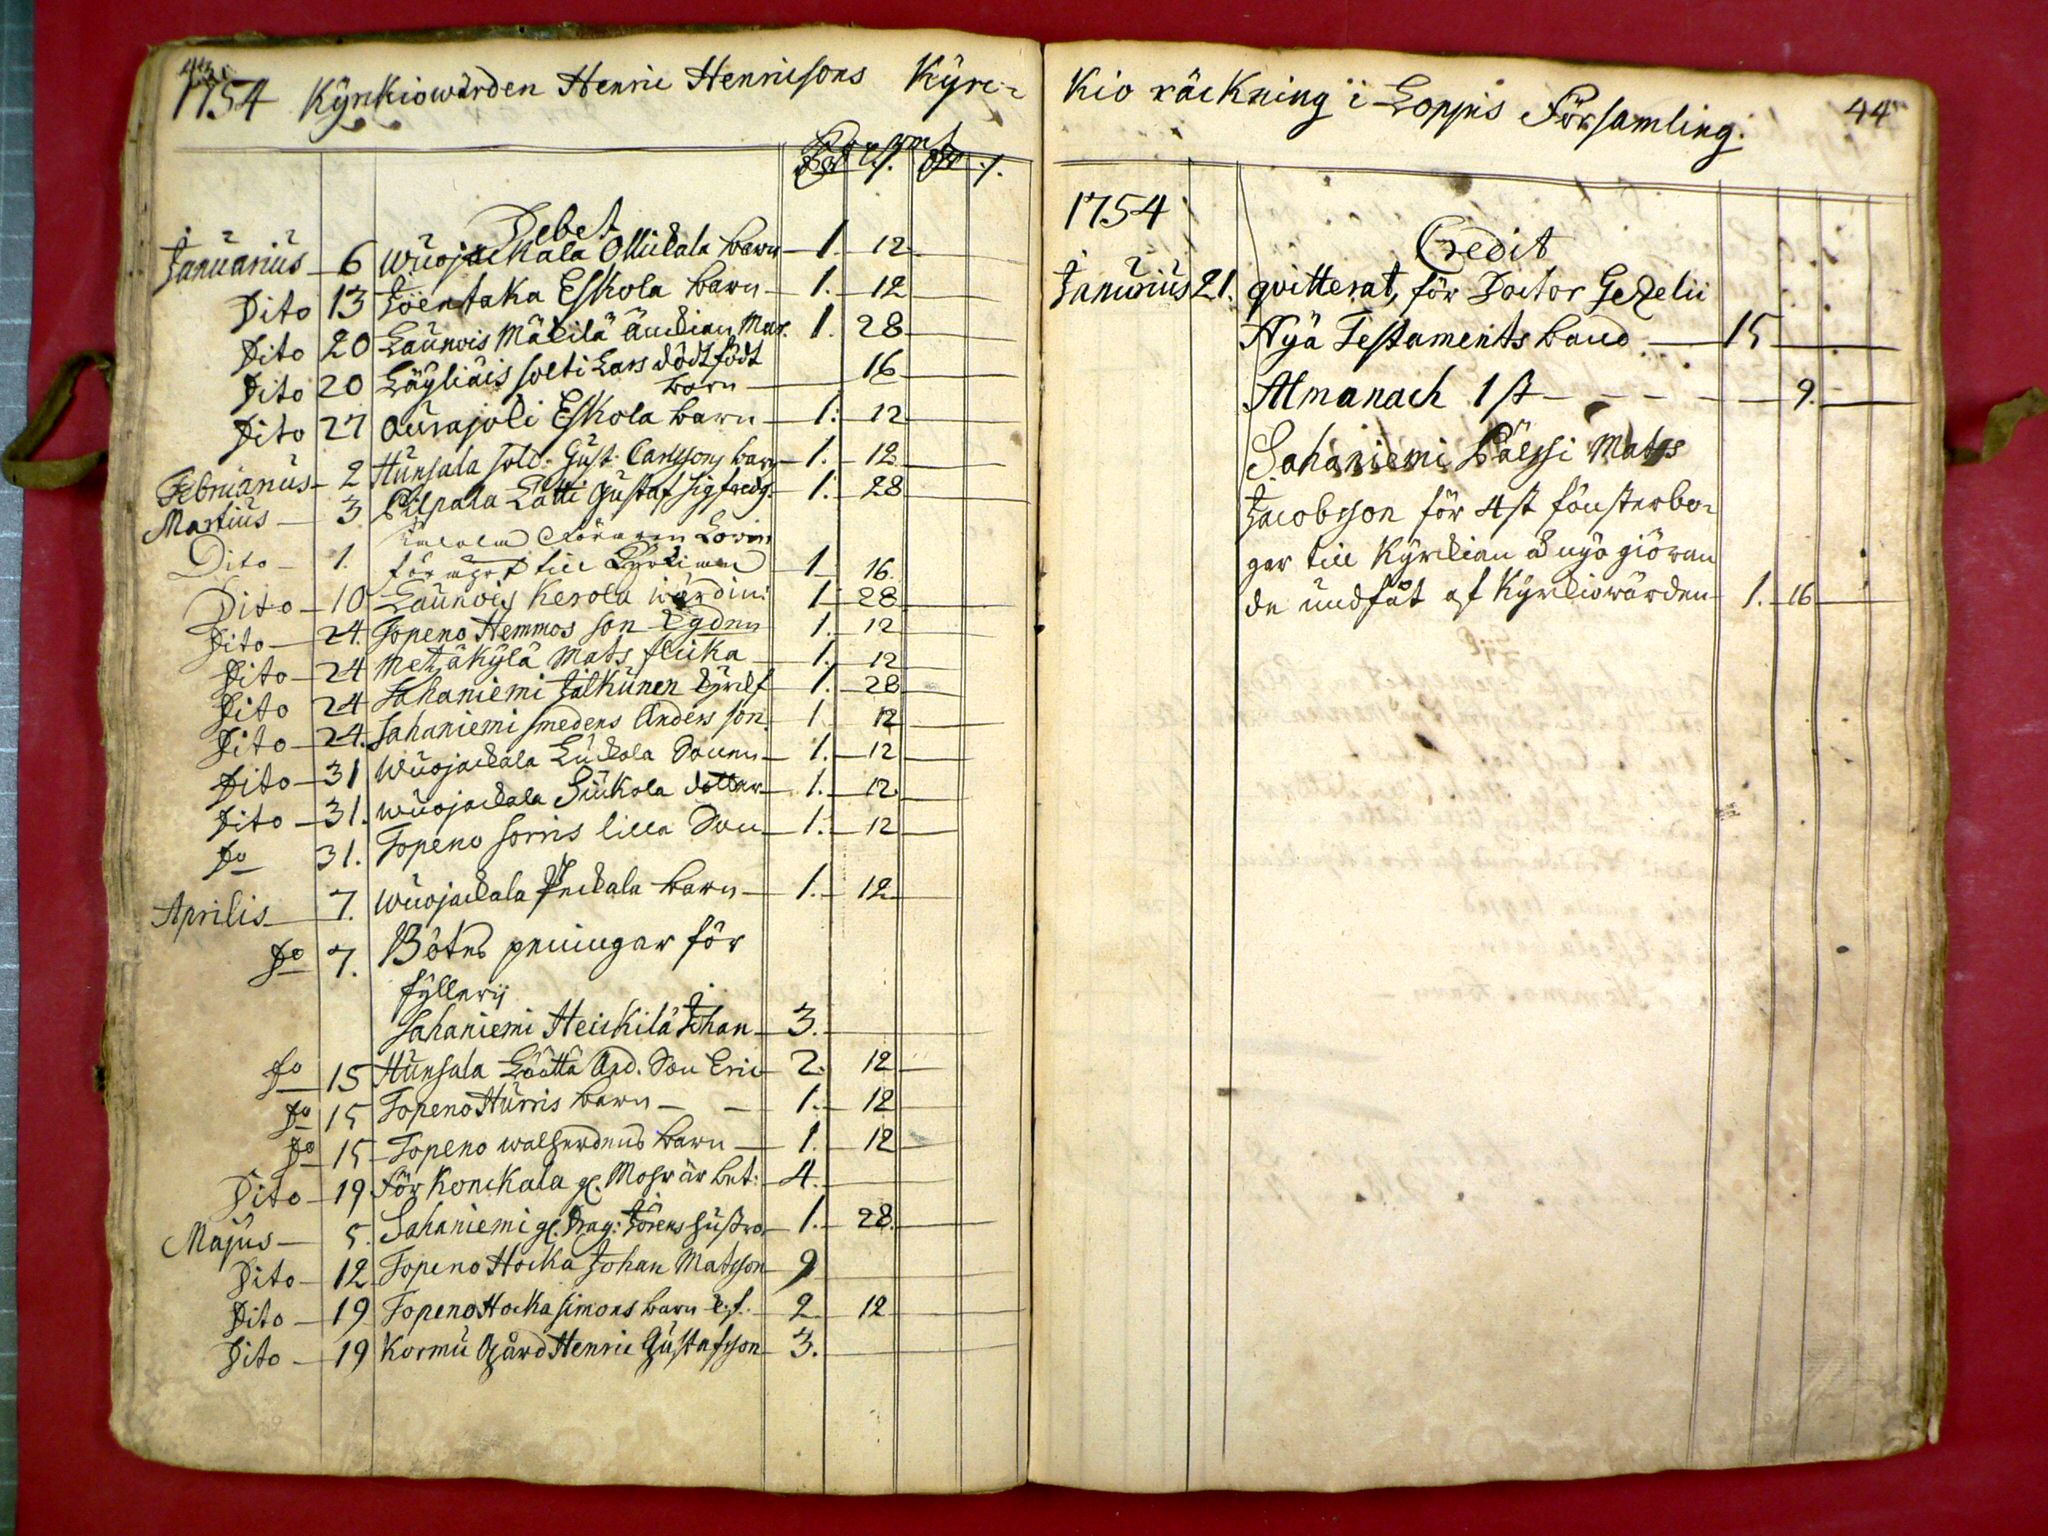 1754 Kÿrkiowärden Henric Henricsons Kÿrc-
Debet
Januarius 6 Wuojackala Ollickala barn 1. 12
Dito 13 Joentaka Eskola barn 1. 12
Dito 20 Launois Mäkilä änckian Mar. 1. 28
Dito 20 Läyliäis solti Lars dödfödt
barn 16
Dito 27 Ourajoki Eskola barn 1. 12
Februarius 2 Hunsala sold. Gust. Carlssons barn 1. 12
Martius 3 Pilpala Lätti Gustaf Sigfredz. 1. 28
Dito 1.
för till Kyrkian 1 16.
Dito 10 Launois Kerola wärdin: 1 28
Dito 24. Topeno Hemmos son 1. 12
Dito 24 Metzäkÿlä Mats flicka 1. 12
Dito 24 Sahaniemi Jälkünen 1. 28
Dito 24. Sahaniemi smedens Anders son 1 12
Dito 31 Wuojackala Luckola Sonen 1. 12
Dito 31. Wuojackala Siukola dotter 1. 12
Do 31. Topeno Sorris lilla Son 1. 12
Aprilis 7. Wuojackala Peckala barn 1. 12
Do 7. Bötes peningar för
fÿllerij
Sahaniemi Heickilä Johan 3.
Do 15 Hunsala And. Son Eric 2. 12
Do 15 Topeno Hurris barn 1. 12
Do 15 Topeno barn 1. 12
Dito 19 För Konckala gl. Mohr är bet: 4.
Majus 5. Sahaniemi gl. Drag: Jörens hustro 1. 28.
Dito 12 Topeno Hocka Johan Matsson 9
Dito 19 Topeno Hocka Simons barn 2 12
Dito 19 Kormu Gård Henric Gustafsson 3.
Kio räckning i Loppis Församling. 44
1754
Credit
Januarius 21. qvitterat, för Doctor Gezelii
Nya Testaments band 15
Almanach 1 st 9.
Sahaniemi Päessi Mats
Jacobsson för 4 st fönsterbo-
gar till Kÿrckian å nÿo giöran
de undfåt af Kÿrckiowärden 1. 16